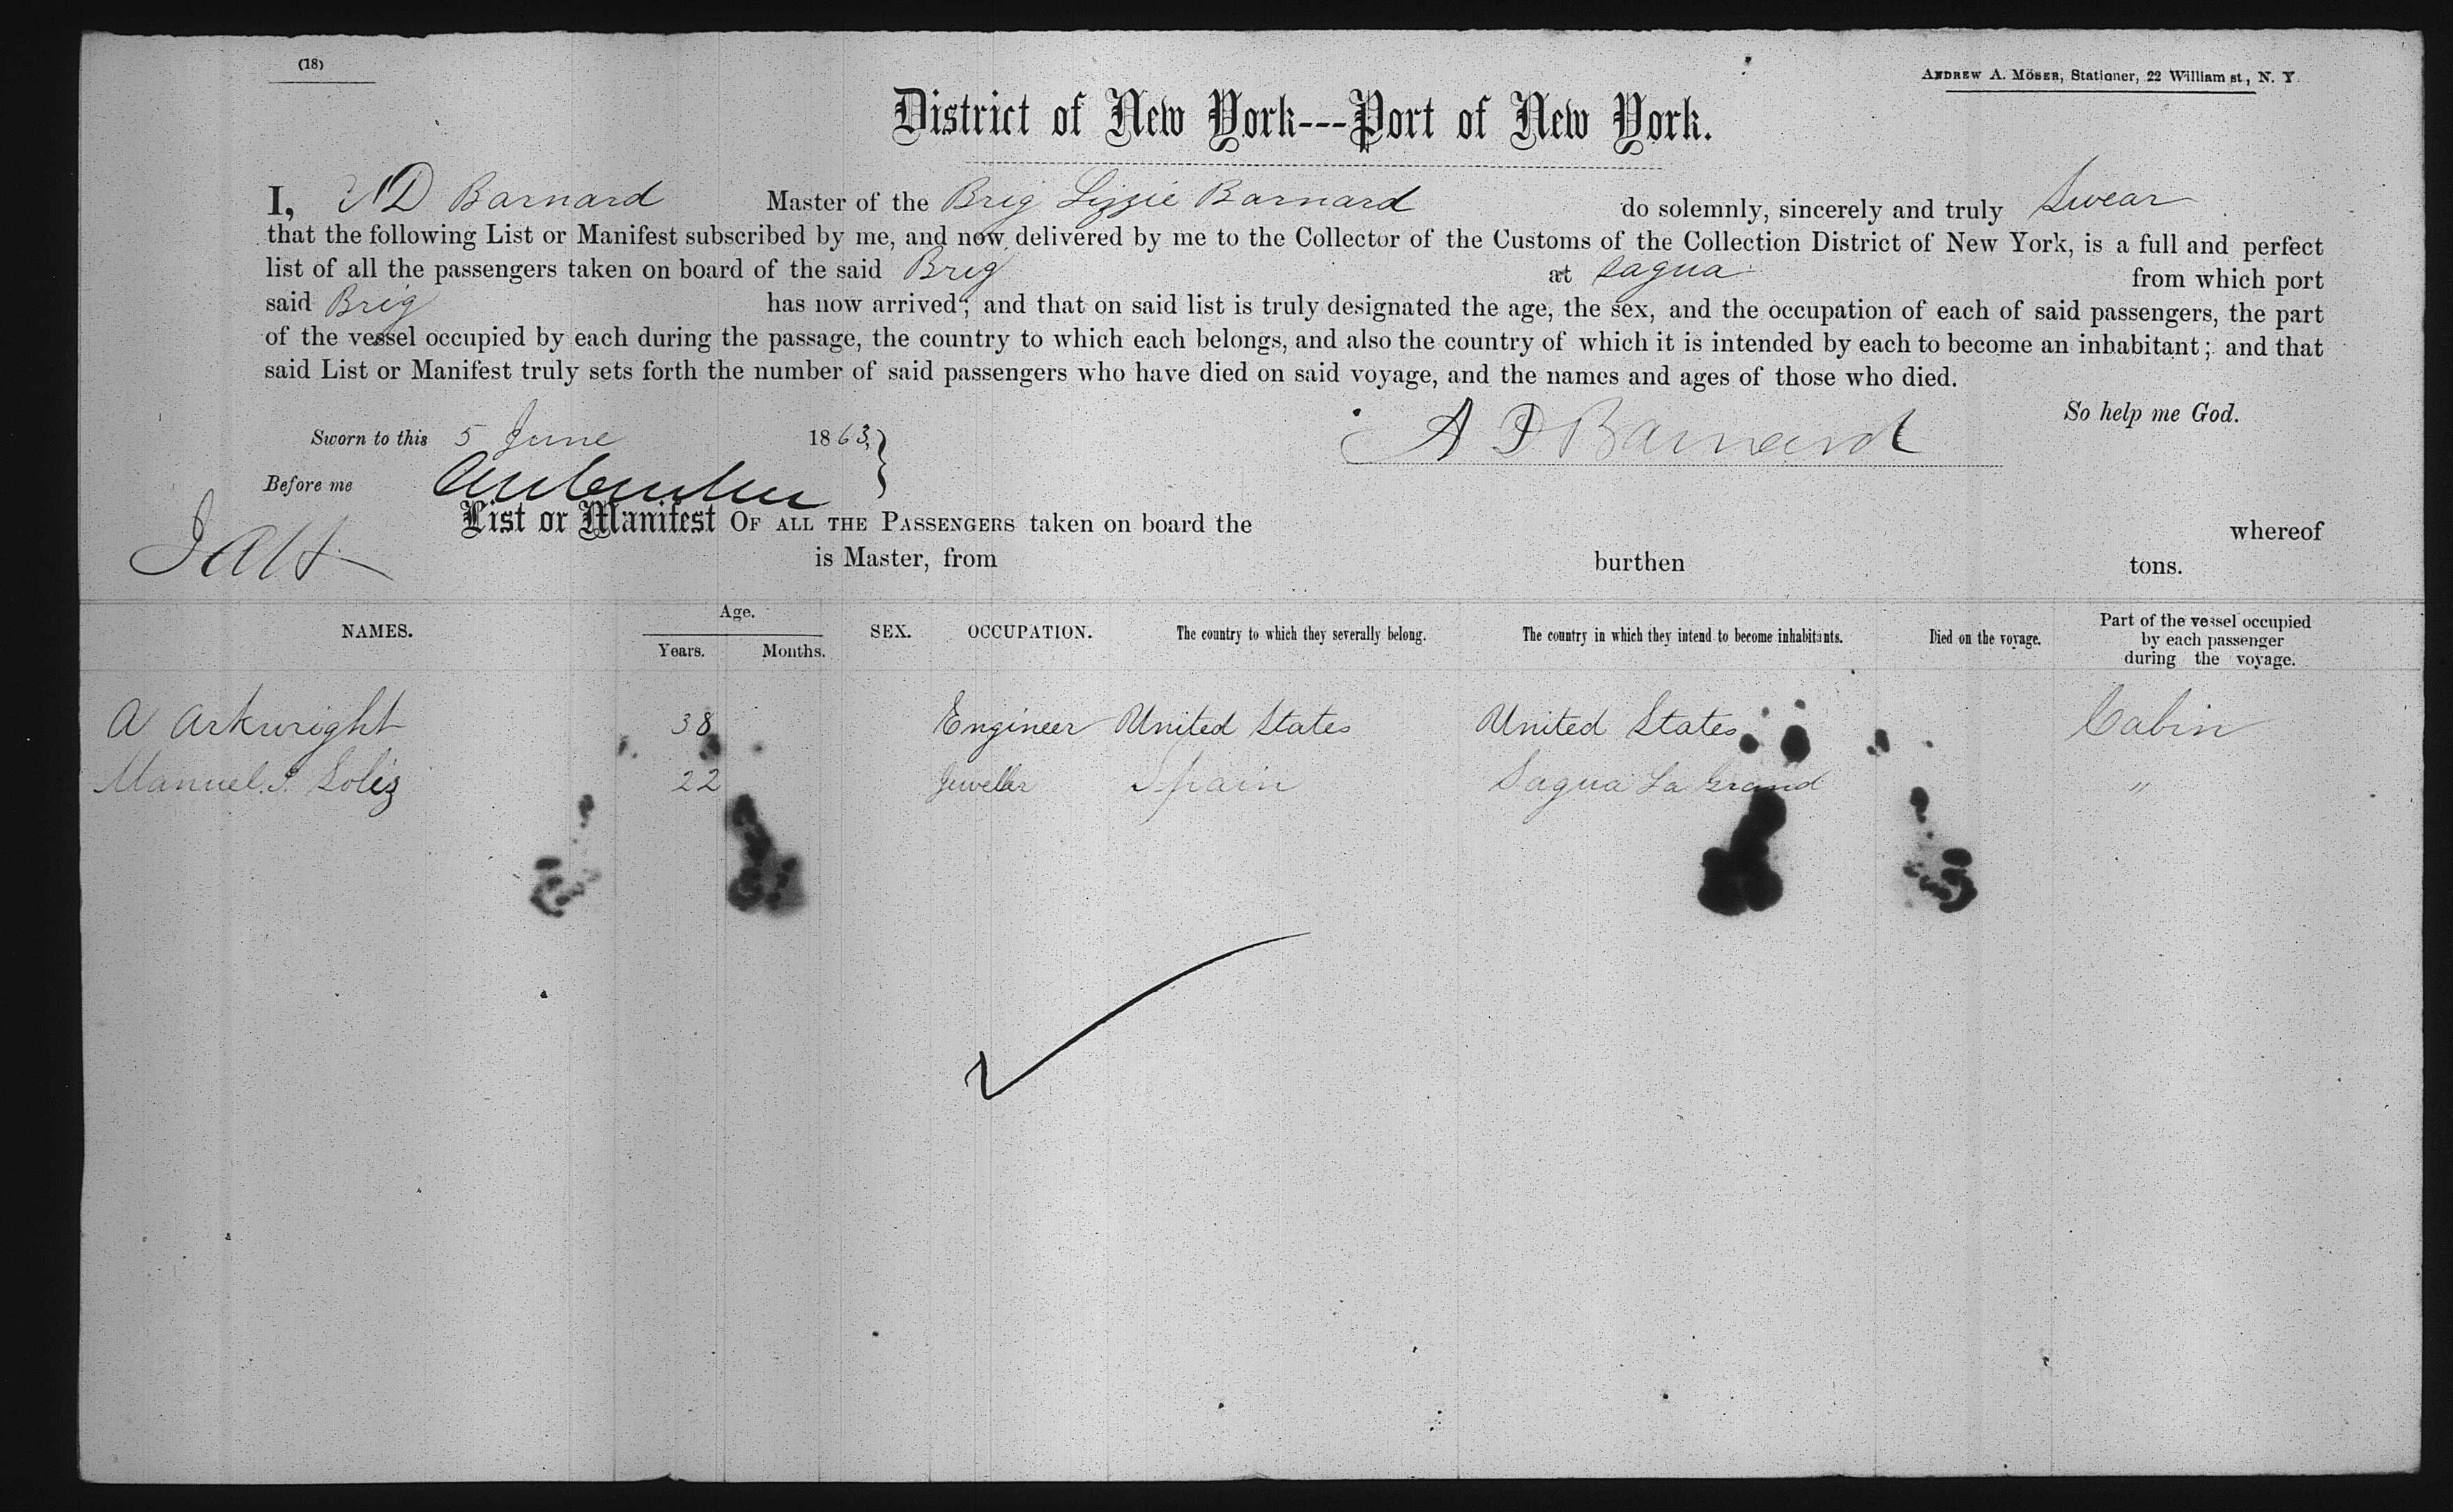 (18)
ANDREW A. MÖSER, Stationer, 22 William st., N. Y.
District of New York---Port of New York.
I, A D Barnard Master of the Brig Lizzie Barnard do solemnly, sincerely and truly Swear
that the following List or Manifest subscribed by me, and now delivered by me to the Collector of the Customs of the Collection District of New York, is a full and perfect
list of all the passengers taken on board of the said Brig at Sagua from which port
said Brig has now arrived; and that on said list is truly designated the age, the sex, and the occupation of each of said passengers, the part
of the vessel occupied by each during the passage, the country to which each belongs, and also the country of which it is intended by each to become an inhabitant; and that
said List or Manifest truly sets forth the number of said passengers who have died on said voyage, and the names and ages of those who died.
So help me God.
Sworn to this 5 June 1863 } A D Barnard
Before me
List or Manifest OF ALL THE PASSENGERS taken on board the whereof
is Master, from burthen tons.
NAMES. Age. Years. Months. SEX. OCCUPATION. The country to which they severally belong. The country in which they intend to become inhabitants. Died on the voyage. Part of the vessel occupied by each passenger during the voyage.
A Arkwright 38 Engineer United States United States Cabin
Manuel Soliz 22 Jeweller Spain Sagua La Grand "